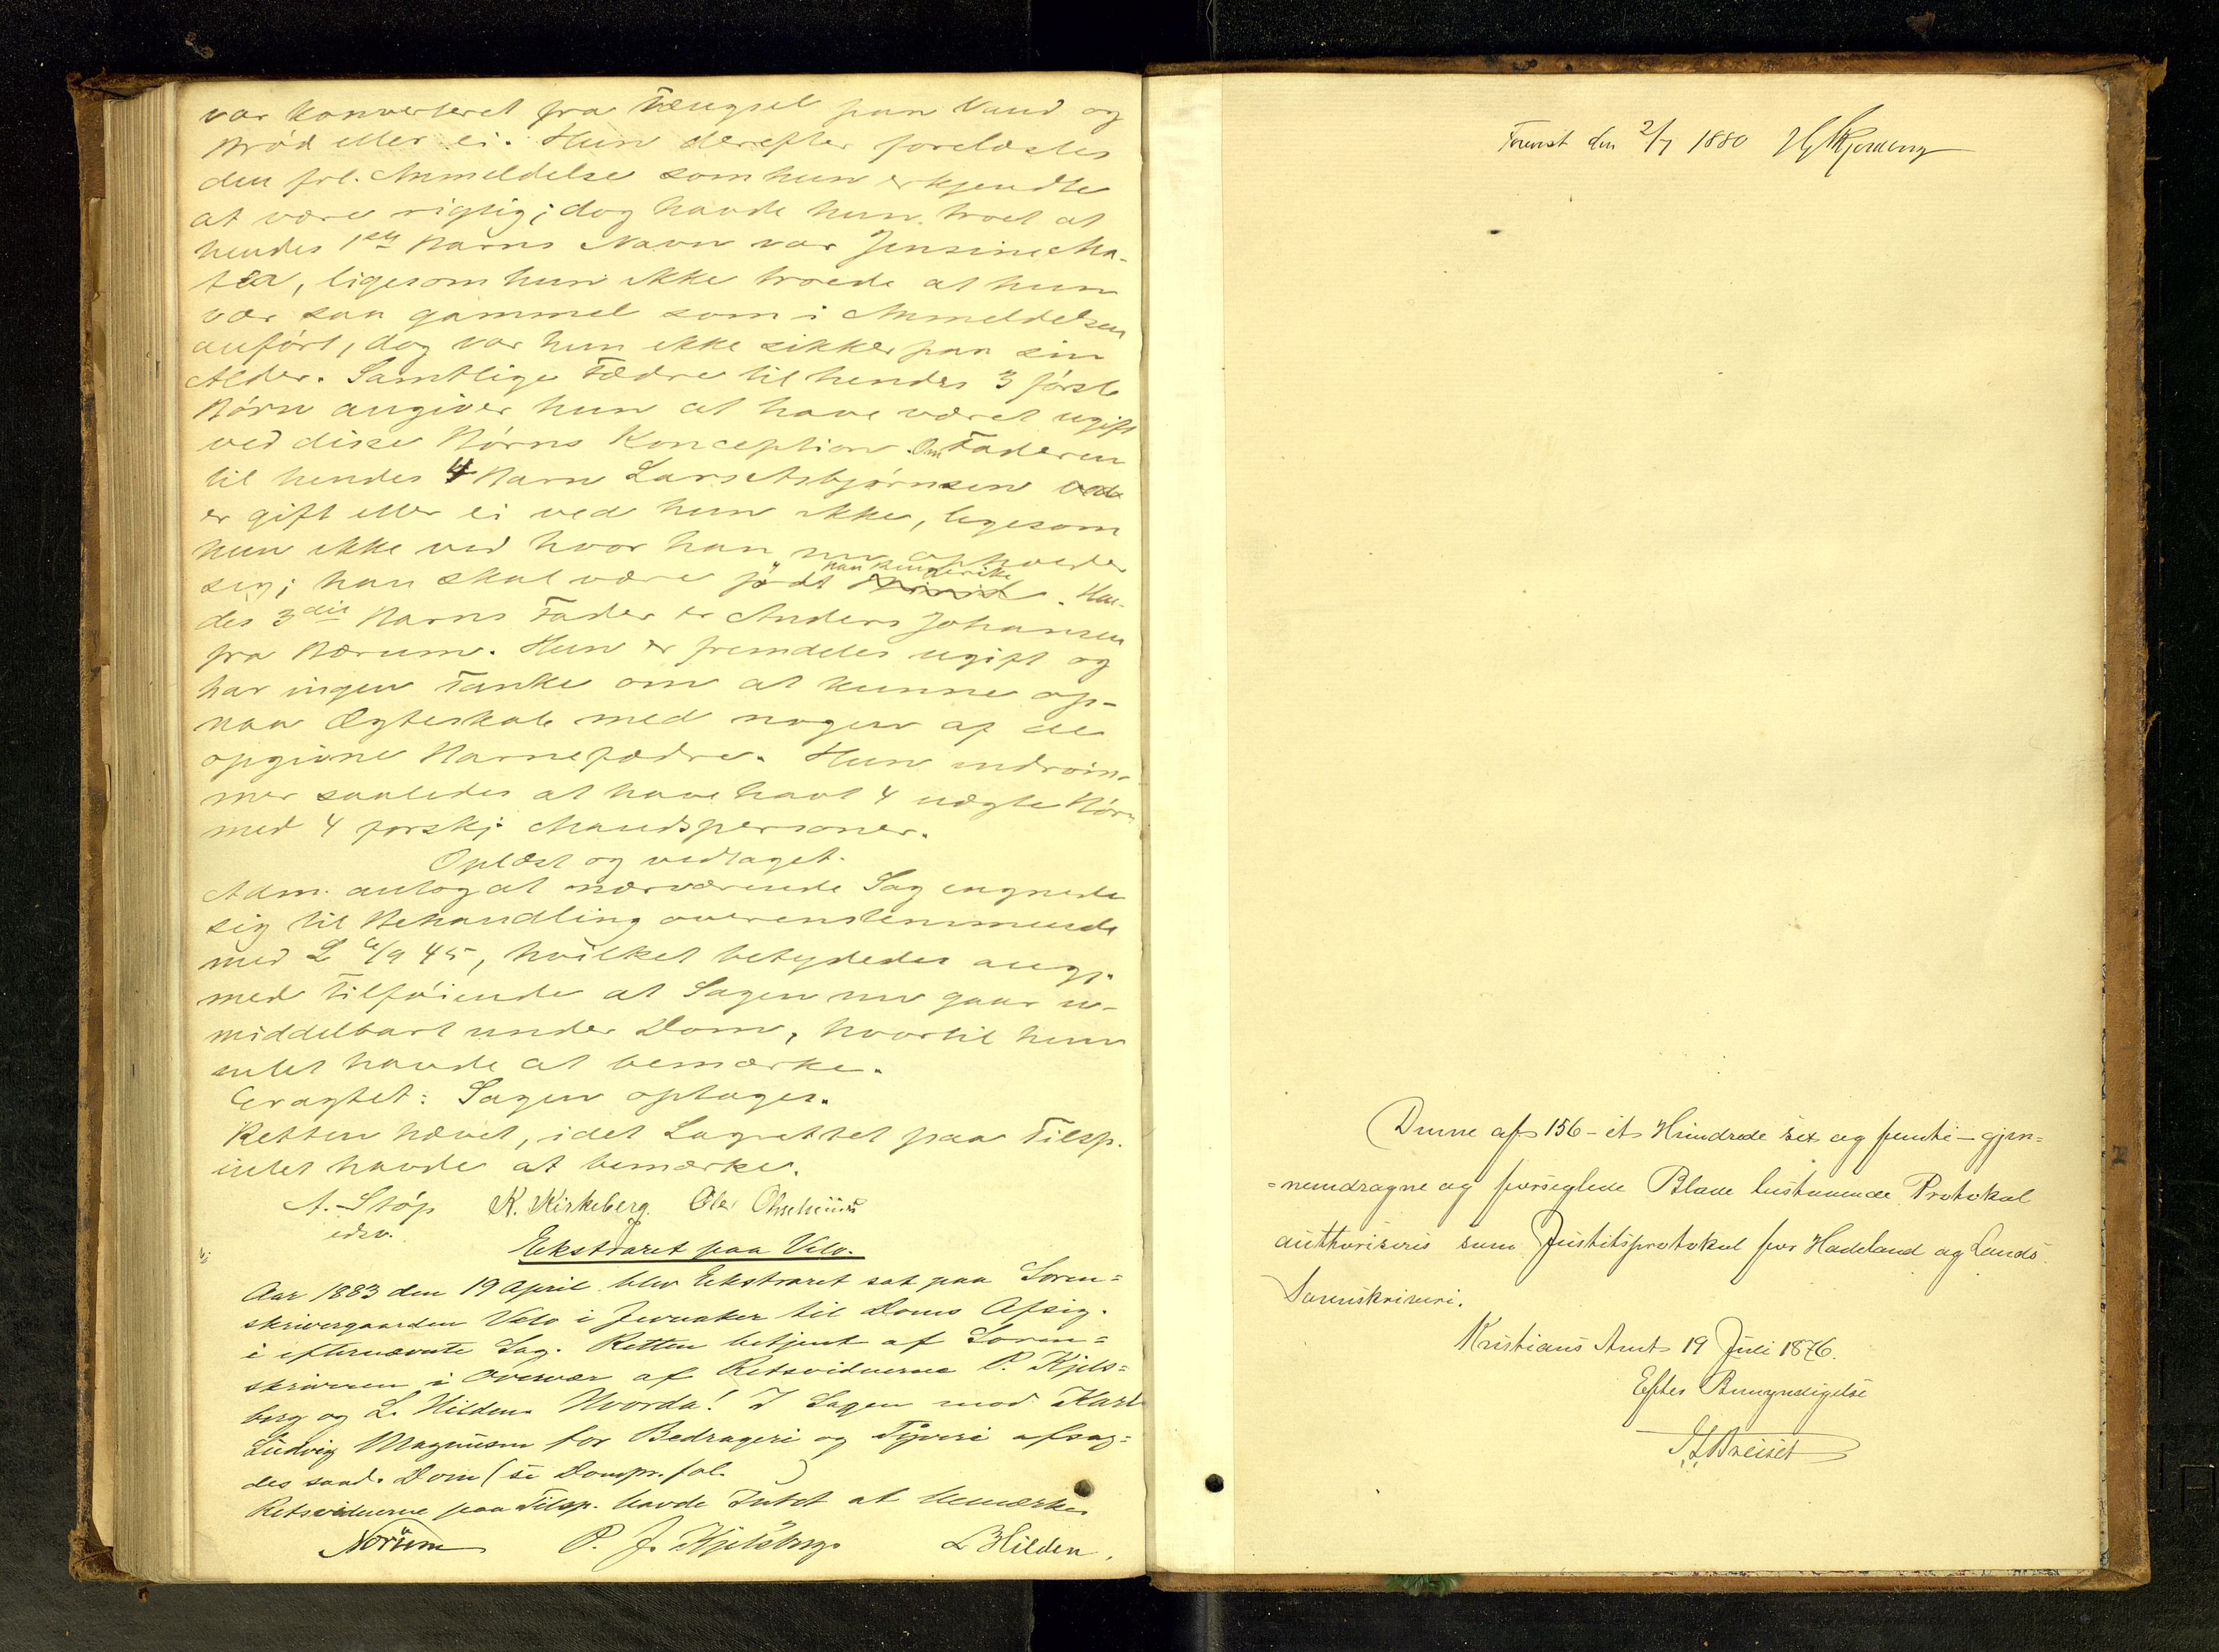 var konverteret fra Fængsel paa Vand og
Brød eller ei. Hun derefter forelæstes
den frl. Anmeldelse som hun erkjendte
at være rigtig; dog havde hun troet at
hendes 1ste Barns Navn var Jensine Ma-
tea, ligesom hun ikke troede at hun
var saa gammel som i Anmeldelsen
anført, dog var hun ikke sikker paa sin
Alder. Samtlige Fædre til hendes 3 første
Børn angiver hun at have været ugift
ved disse Børns Konception. Om Faderen
til hendes 4 Barn Lars Asbjørnsen
er gift eller ei ved hun ikke, ligesom
hun ikke ved hvor han nu opholder
sig; han skal være født paa Ringerike. Hen-
des 3die Barns Fader er Anders Johansen
fra Bærum. Hun er fremdeles ugift og
har ingen Tanke om at kunne op-
naa Ægteskab med nogen af de
opgivne Barnefædre. Hun indrøm-
mer saaledes at have havt 4 uægte Børn
med 4 forskj. Mandspersoner.
Oplæst og vedtaget.
Adm. antog at nærværende Sag egnede
sig til Behandling overensstemmende
med L 6/9 45, hvilket betydedes angj.
med Tilføiende at Sagen nu gaar u-
middelbart under Dom, hvortil hun
intet havde at bemærke.
Eragtet: Sagen optages.
Retten hævet, idet Lagrettet paa Tilsp.
intet havde at bemærke.
A. Støp K. Kirkeberg. Ole
edsv.
Ekstraret paa Velo.
Aar 1883 den 19 April blev Ekstraret sat paa Soren=
skrivergaarden Velo i Jevnaker til Doms Afsig.
i efternævnte Sag. Retten betjent af Soren=
skriveren i Overvær af Retsvidnerne P. Kjels=
berg og L. Hilden. Hvorda! I Sagen mod Karl
Ludvig Magnusen for Bedrageri og Tyveri afsag=
des saad. Dom (se Dompr. fol. )
Retsvidnerne paa Tilsp. havde Intet at bemærke
Nørum P. J. Kjelsberg L Hilden.
Foreviist den 2/7 1880
Denne af 156 - et Hundrede sex og femti - gjen=
=nemdragne og forseglede Blade bestaaende Protokol
authoriseres som Justitsprotokol for Hadeland og Lands
Sorenskriveri.
Kristians Amt 19 Juli 1876.
Efter Bemyndigelse